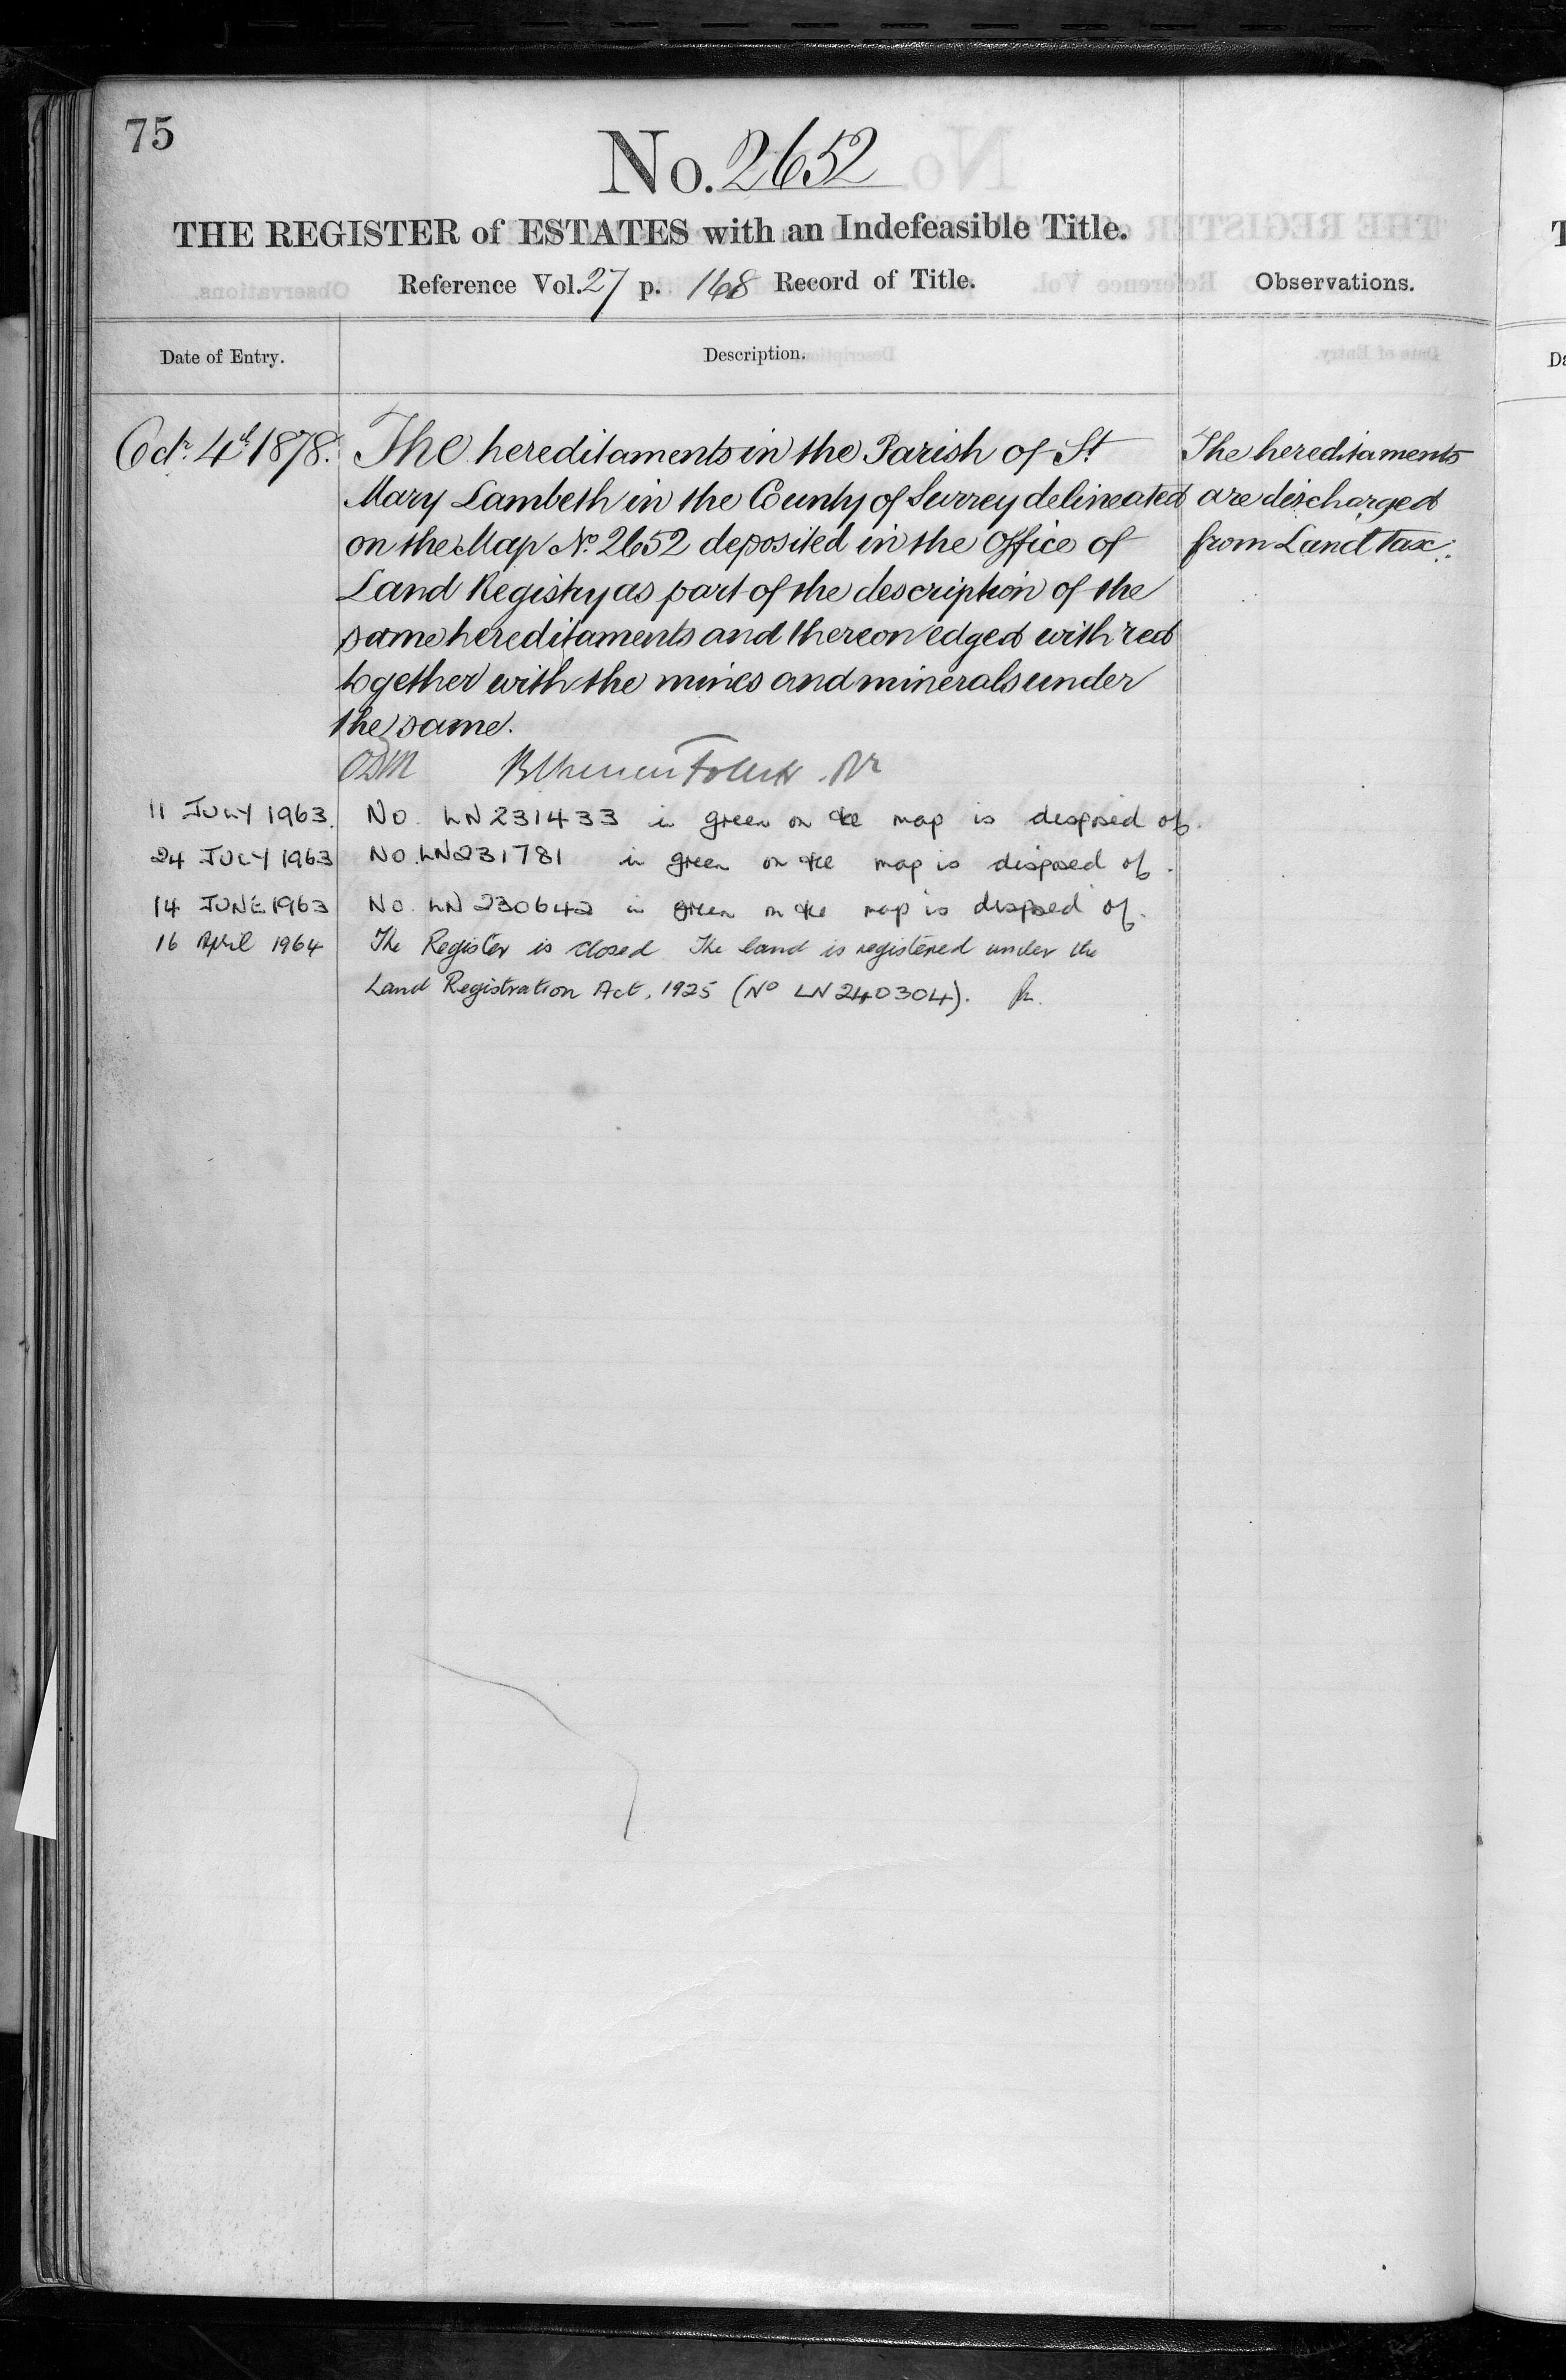 75
No. 2652
THE REGISTER of ESTATES with an Indefeasible Title.
Reference Vol. 27 p. 168 Record of Title.
Observations.
Date of Entry.
Description.
Octr. 4th 1878.
The hereditaments in the Parish of St
Mary Lambeth in the County of Surrey delineated
on the Map No. 2652 deposited in the Office of
Land Registry as part of the description of the
same hereditaments and thereon edged with red
together with the mines and minerals under
the same.
The hereditaments
are discharged
from Land Tax.
11 JULY 1963. No. LN 231433 in green on the map is disposed of.
24 JULY 1963 No. LN231781 in green on the map is disposed of.
14 JUNE 1963 No. LN 230642 in green on the map is disposed of.
16 April 1964 The Register is closed The land is registered under the
Land Registration Act, 1925 (No LN 240304).